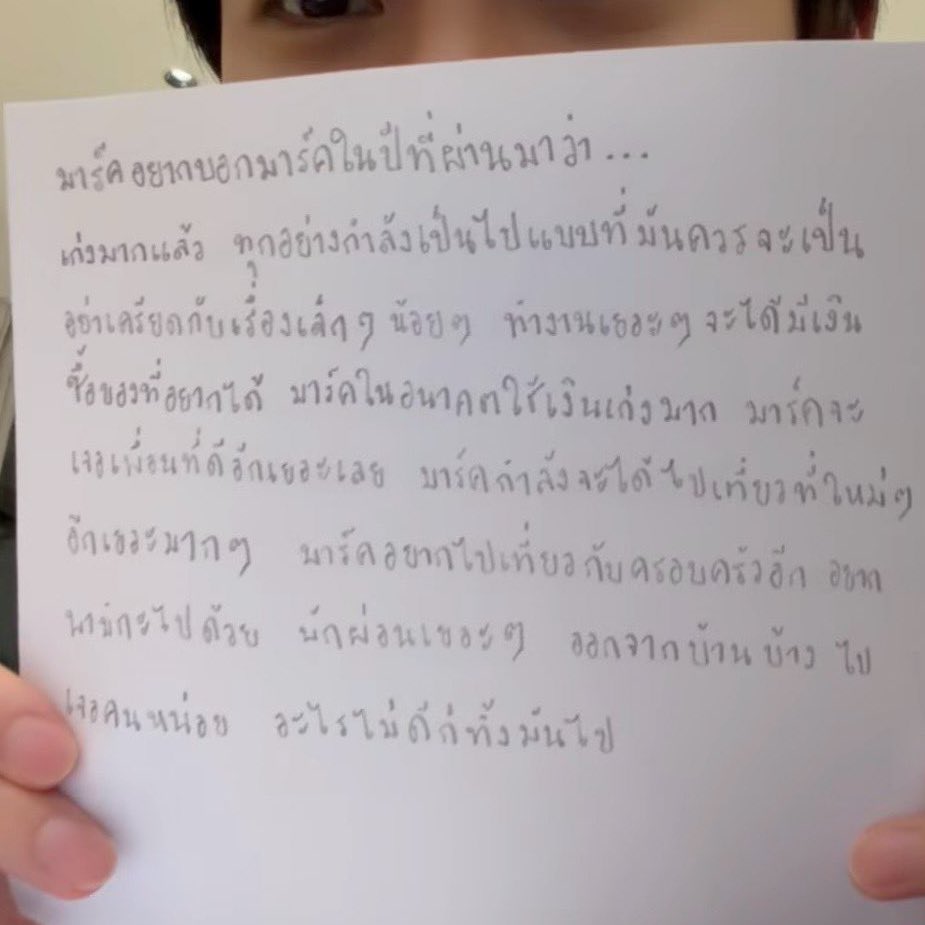 มาร์คอยากบอกมาร์คในปีที่ผ่านมาว่า...
เก่งมากแล้ว ทุกอย่างกำลังเป็นไปแบบที่มันควรจะเป็น
อย่าเครียดกับเรื่องเล็กๆ น้อยๆ ทำงานเยอะๆ จะได้มีเงิน
ซื้อของที่อยากได้ มาร์คในอนาคตใช้เงินเก่งมาก มาร์คจะ
เจอเพื่อนที่ดีอีกเยอะเลย มาร์คกำลังจะได้ไปเที่ยวที่ใหม่ๆ
อีกเยอะมากๆ มาร์คอยากไปเที่ยวกับครอบครัวอีก อยาก
ไปด้วย พักผ่อนเยอะๆ ออกจากบ้านบ้าง ไป
เจอคนหน่อย อะไรไม่ดีก็ทิ้งมันไป